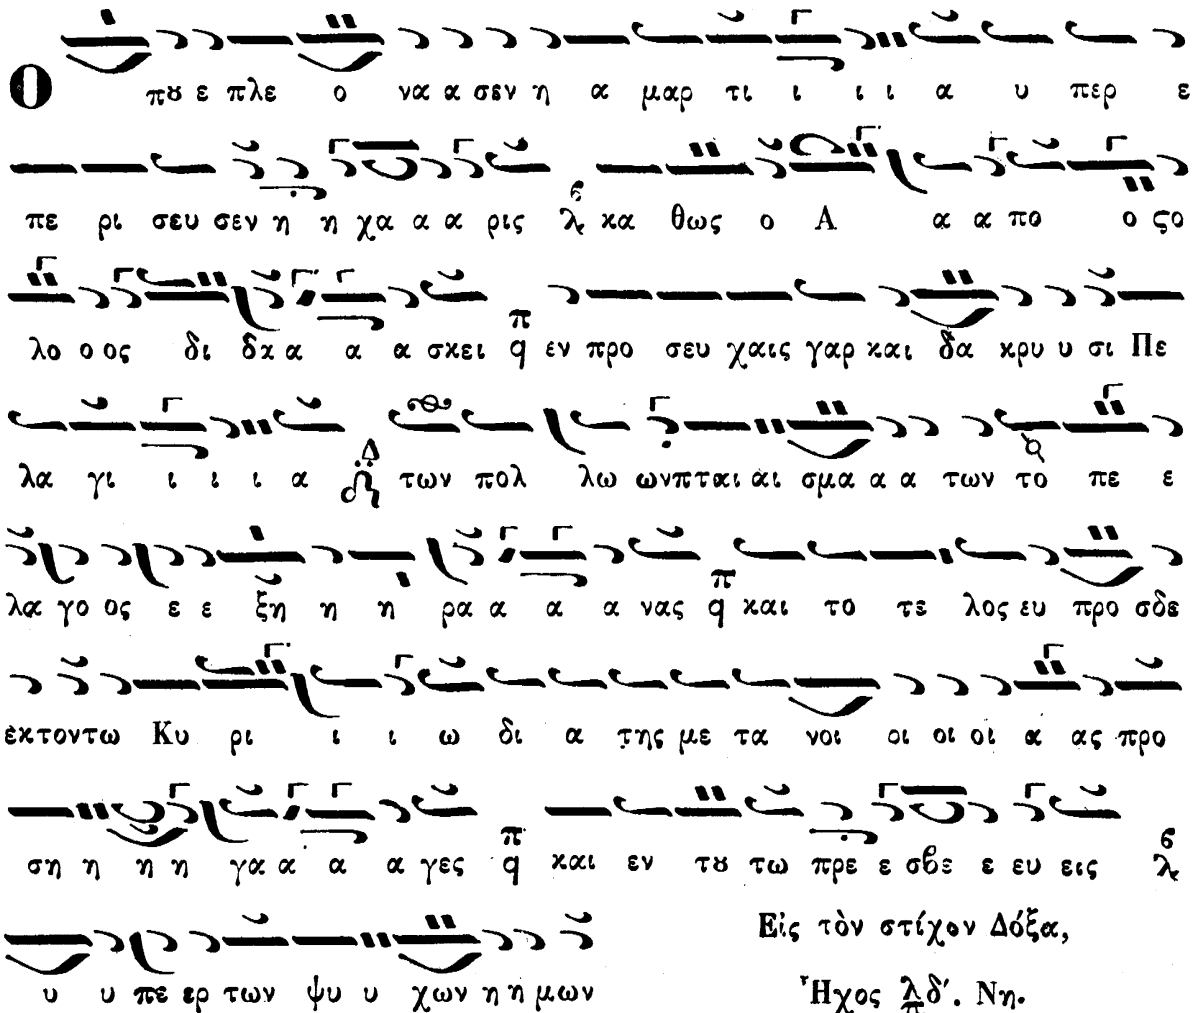 Ο πȣ ε πλε ο να α σεν η α μαρ τι ι ι ι α υ περ ε
πε ρι σευ σεν η η χα α α ρις κα θως ο Α α α πο ο ϛο
λο ο ος δι δκα α α σκει π q εν προ σευ χαις γαρ και δα κρυ υ σι Πε
λα γι ι ι ι α Δ των πολ λω ωνπται αι σμα α α των το πε ε
λα γο ος ε ε ξη η η ρα α α α νας π q και το τε λος ευ προ σδε
εκτοντω Κυ ρι ι ι ω δι α της με τα νοι οι οι οι α ας προ
ση η η η γα α α α γες π q και εν τȣ τω πρε ε σβε ε ευ εις
υ υ πε ερ των ψυ υ χων η η μων
Εἰς τὸν στίχον Δόξα,
Ἦχος λ π δ΄. Νη.